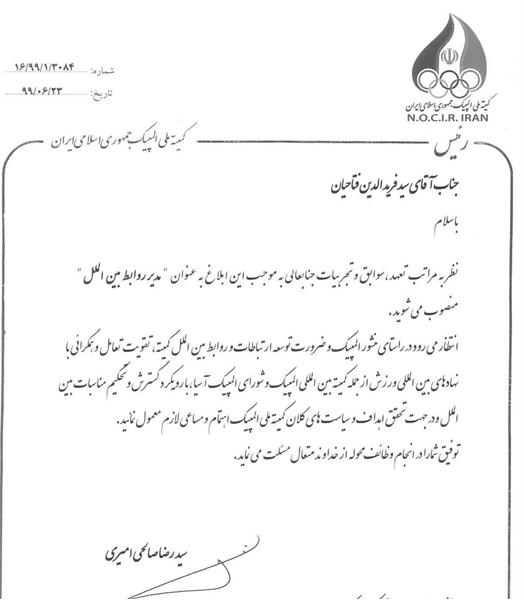 شماره: ۱۶/۹۹/۱/۳۰۸۴
تاریخ: ۹۹/۰۶/۲۳
کمیته ملی المپیک جمهوری اسلامی ایران
N.O.C.I.R. IRAN
رئیس
کمیته ملی المپیک جمهوری اسلامی ایران
جناب آقای سید فریدالدین فتاحیان
باسلام
نظر به مراتب تعهد، سوابق و تجربیات جنابعالی به موجب این ابلاغ به عنوان "مدیر روابط بین الملل"
منصوب می شوید.
انتظار می رود در راستای منشور المپیک و ضرورت توسعه ارتباطات و روابط بین الملل کمیته، تقویت تعامل و همگرائی با
نهادهای بین المللی ورزش از جمله کمیته بین المللی المپیک و شورای المپیک آسیا، با رویکرد گسترش و تحکیم مناسبات بین
الملل و در جهت تحقق اهداف و سیاست های کلان کمیته ملی المپیک اهتمام و مساعی لازم معمول نمائید.
توفیق شما را در انجام وظائف محوله از خداوند متعال مسئلت می نماید.
سید رضا صالحی امیری